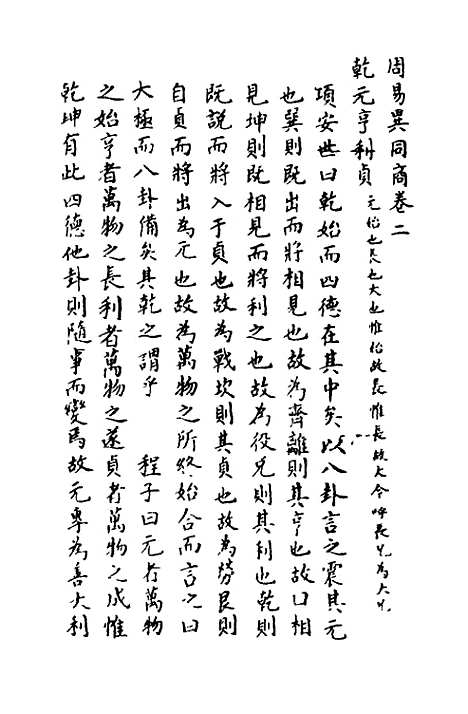 周易異同商卷二
乾元亨利貞 元始也長也大也惟始故長惟長故大今呼長兄為大兄
項安世曰乾始而四德在其中矣以八卦言之震其元
也巽則既出而將相見也故為齊離則其亨也故曰相
見坤則既相見而將利之也故為役兌則其利也乾則
既說而將入于貞也故為戰坎則其貞也故為勞艮則
自貞而將出為元也故為萬物之所終始合而言之曰
大極而八卦備矣其乾之謂乎 程子曰元者萬物
之始亨者萬物之長利者萬物之遂貞者萬物之成惟
乾坤有此四德他卦則隨事而變焉故元專為善大利